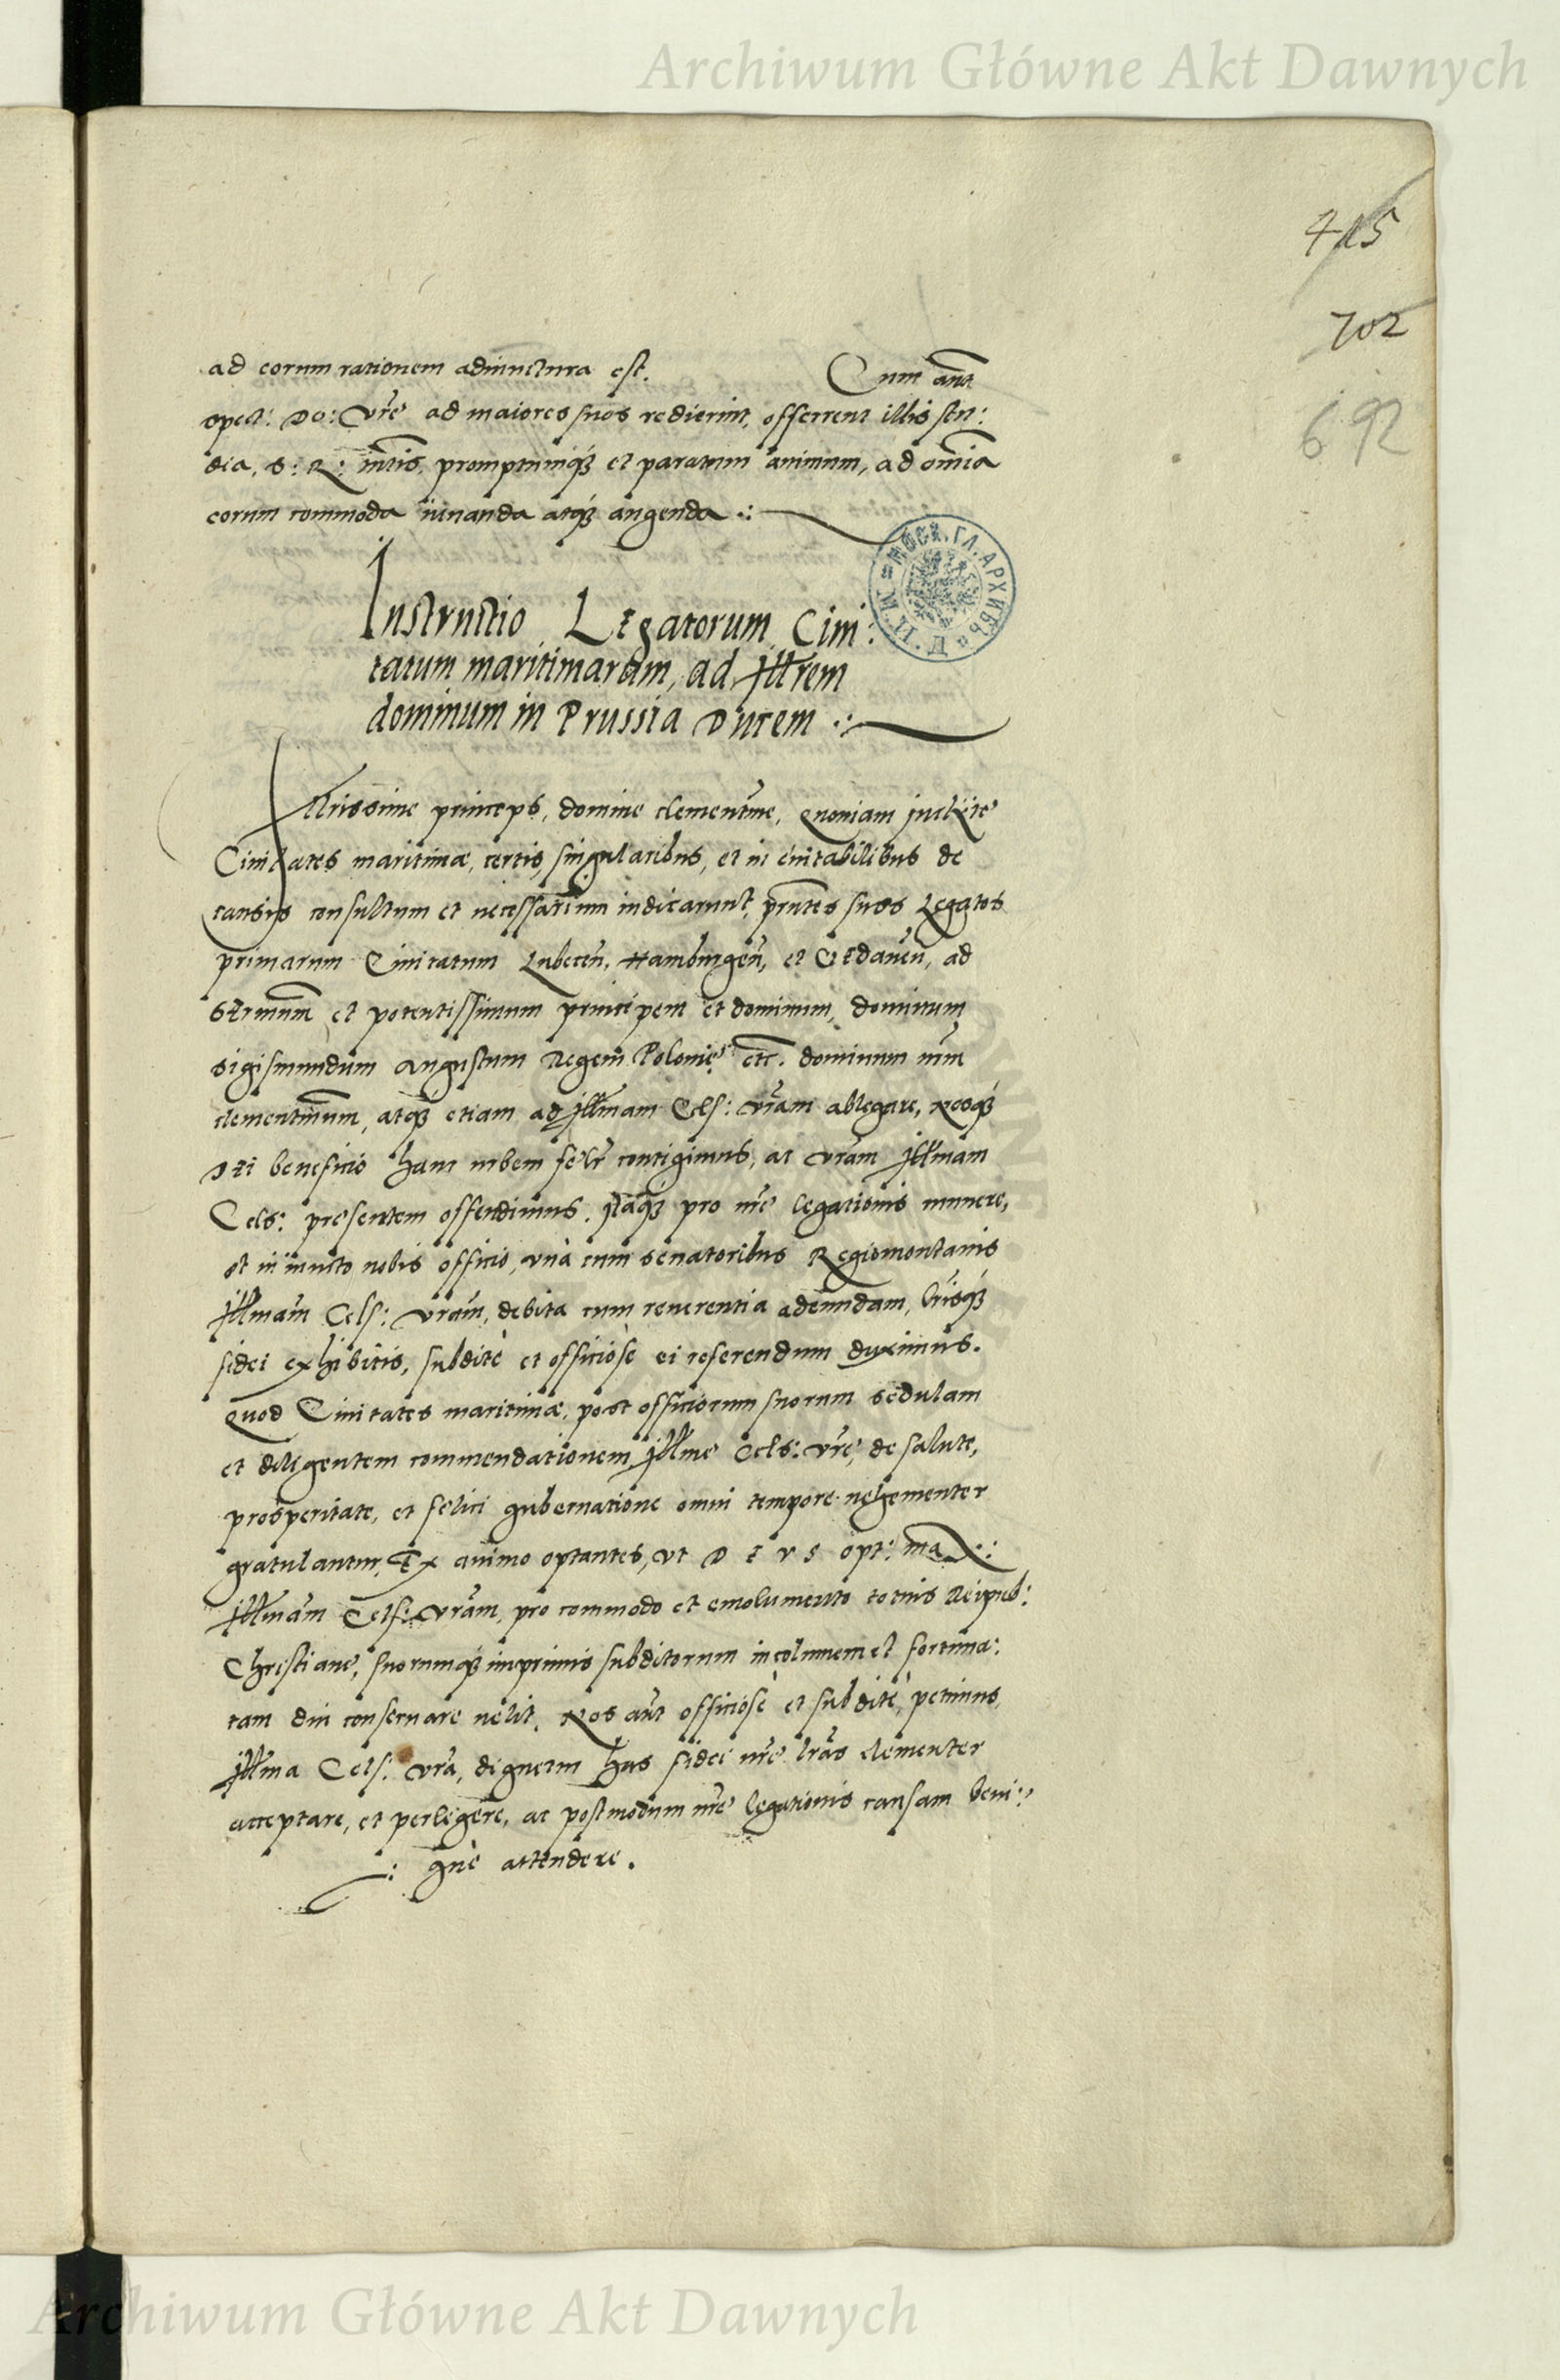 Archiwum Główne Akt Dawnych
415
702
692
ad eorum rationem adiunctura est. Cum aut
spect: Do: Vre ad maiores suos redierint, offerrent illis stu:
dia, S: R: mtis, promptumq et paratum animum, ad omia
eorum commoda iuuanda atq augenda .:
МОСК. ГЛ. АРХИВЪ М. И. Д.
Instructio Legatorum Ciui:
tatum maritimarum, ad Illrem
dominum in Prussia Ducem .:
Illrissime princeps, domine clementme, Quoniam inclite
Ciuitates maritimæ, certis, singularibus, et in euitabilibus de
causis consultum et necessarium iudicarunt, pntes suos Legatos
primarum Ciuitatum Lubecen, Hamburgen, et Gedanen, ad
Sermum et potentissimum principem et dominum, dominum
Sigismundum Augustum Regem Polonie etc. dominum nrm
clementmum, atq etiam ad Illmam Cels: Vram ablegare, Nosq
Dei beneficio hanc urbem felr contigimus, ac Vram Illmam
Cels: presentem offendimus. Itaq pro nre legationis munere,
et iniuncto nobis officio, vnà cum Senatoribus Regiomontanis
Illmam Cels: Vram, debita cum reuerentia adeundam, lrisq
fidei exhibitis, subditè et officiosè ei referendum duximus.
Quod Ciuitates maritimæ, post officiorum suorum sedulam
et diligentem commendationem, Illme Cels: Vre, de salute,
prosperitate, et felici gubernatione omni tempore uehementer
gratulantur, Ex animo optantes, vt D E V S opt: max:
Illmam Cels: Vram, pro commodo et emolumento totius Reipub:
Christiane, suorumq imprimis subditorum incolumem et fortuna:
tam diu conseruare uelit. Nos aut officiosè et subditè petimus,
Illma Cels: Vra, dignetur has fidei nre lras clementer
acceptare, et perlegere, ac postmodum nre legationis causam beni:
: gnè attendere.
Archiwum Główne Akt Dawnych